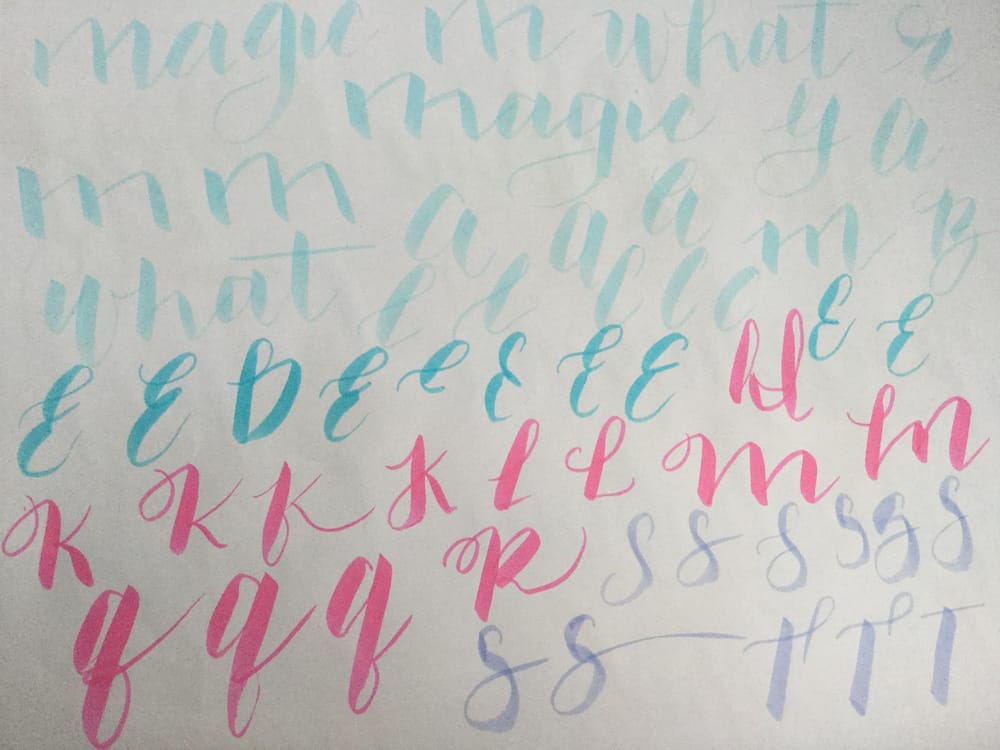 magic m what
magic y a
m m a a a m B
what l l l l c
E E B E E E E E H E E
K K K K l L m m
K q q q R S S S S S S
S S T T T